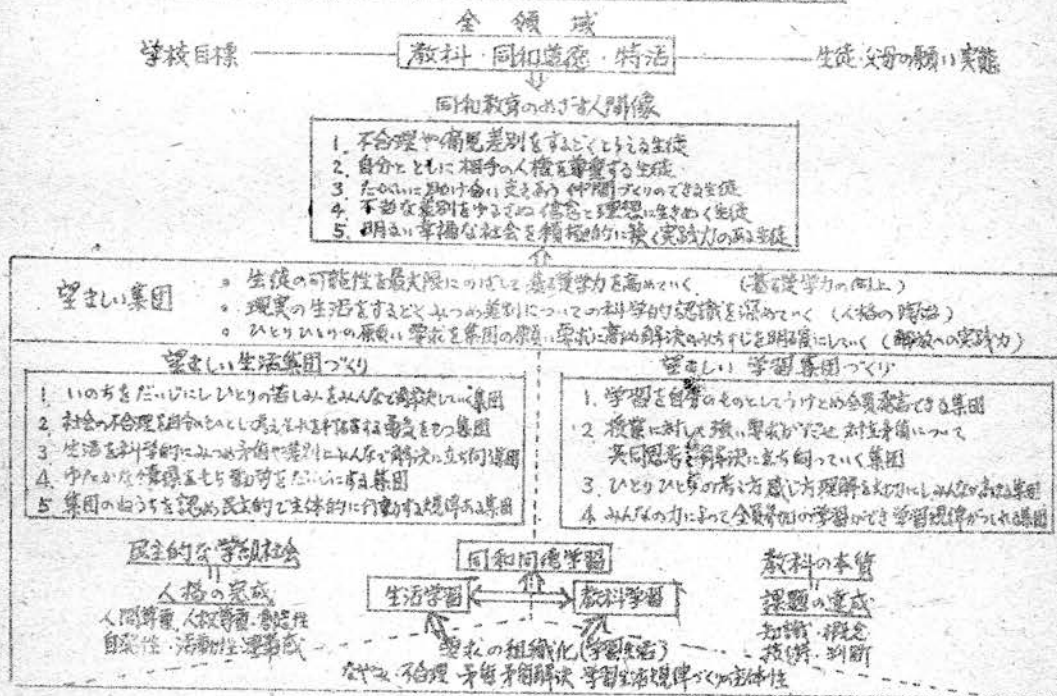 全領域
学校目標
教科・同和道徳・特活
生徒・父母の願い実態
同和教育のめざす人間像
1. 不合理や偏見差別をするどくとらえる生徒
2. 自分とともに相手の人権を尊重する生徒
3. たがいに助け合い支えあう仲間づくりのできる生徒
4. 不当な差別をゆるさぬ信念と理想に生きぬく生徒
5. 明るい幸福な社会を積極的に築く実践力のある生徒
望ましい集団
。生徒の可能性を最大限にのばして基礎学力を高めていく (基礎学力の向上)
。現実の生活をするどくみつめ差別についての科学的認識を深めていく (人格の陶冶)
。ひとりひとりの願い要求を集団の願い要求に高め解決のみちすじを明確にしていく (解放への実践力)
望ましい生活集団づくり
1. いのちをだいじにしひとりの苦しみをみんなで解決していく集団
2 社会の不合理を自分のひととして考えそれを する勇気をもつ集団
3 生活を科学的にみつめ矛盾や差別にみんなで解決に立ち向う集団
4 ゆたかな情操をもち勤労をだいじにする集団
5 集団のねうちを認め民主的で主体的に行動する規律ある集団
望ましい学習集団づくり
1. 学習を自分のものとしてうけとめ全員発言できる集団
2 授業に対して強い要求がだせ 矛盾について
共同思考で解決に立ち向っていく集団
3. ひとりひとりの考え方感じ方理解を大切にしみんなが高まる集団
4 みんなの力によって全員参加の学習ができ学習規律がつくれる集団
民主的な学級社会
人格の完成
人間尊重・人権尊重・創造性
自発性・活動性
同和問題学習
生活学習
教科学習
要求の組織化(学習生活)
なやみ・不合理・矛盾 矛盾解決 学習生活規律づくり 主体性
教科の本質
課題の達成
知識・概念
技術・判断